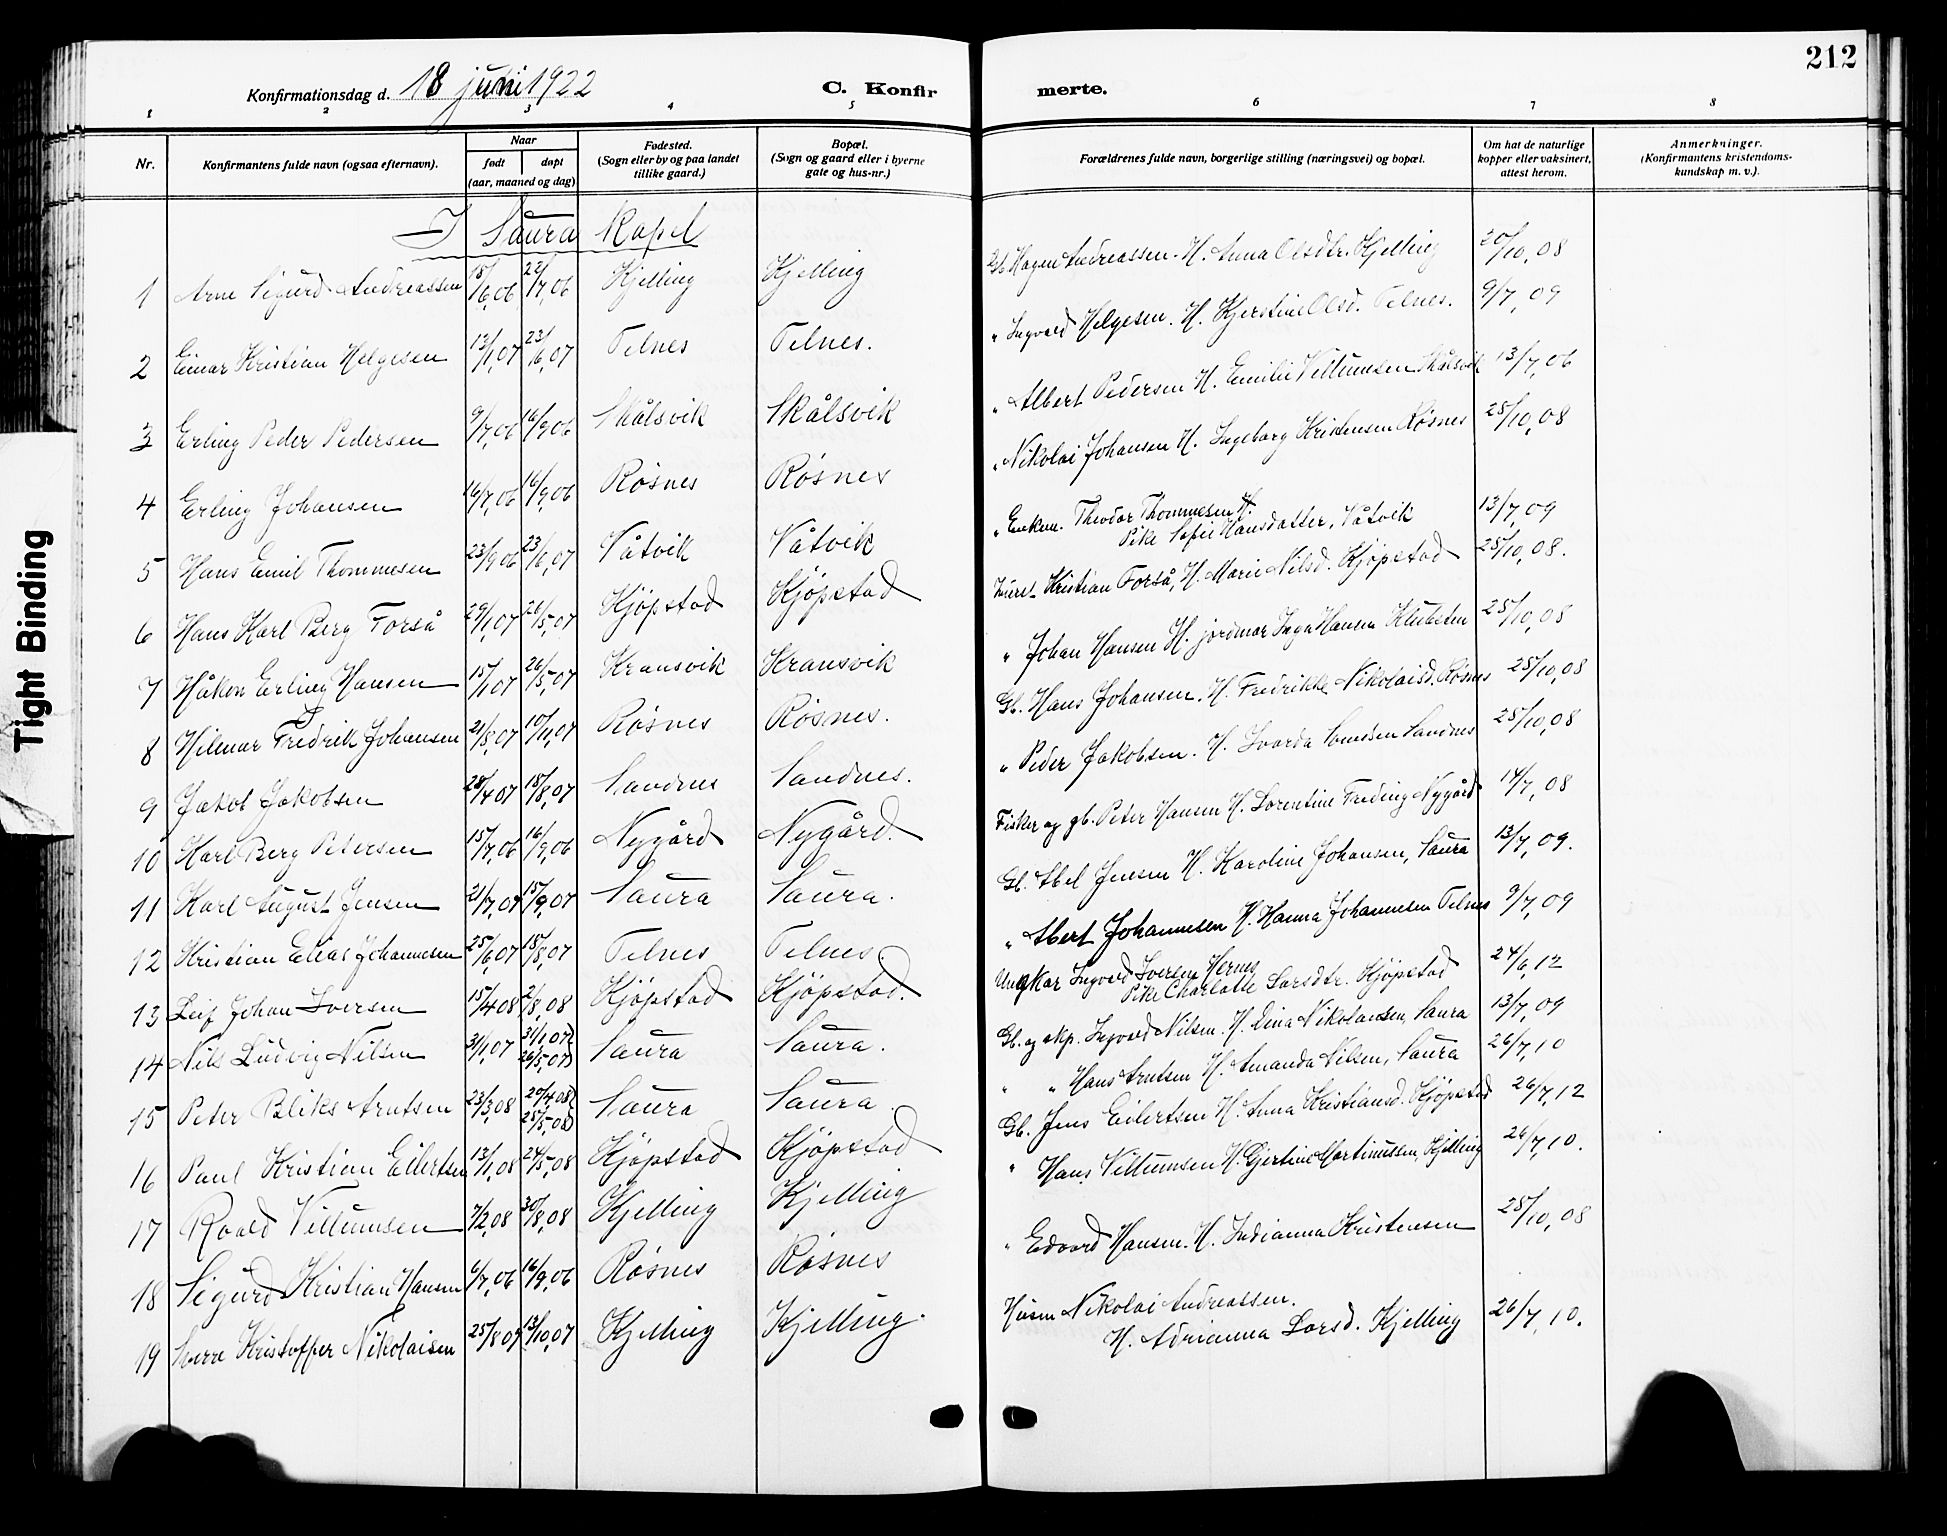 212
Konfirmationsdag d. 18 juni 1922
C. Konfir merte.
1 2 3 4 5 6 7 8
Nr.
Konfirmantens fulde navn (ogsaa efternavn).
Naar
født døpt
(aar, maaned og dag)
Fødested.
(Sogn eller by og paa landet
tillike gaard.)
Bopæl.
(Sogn og gaard eller i byerne
gate og hus-nr.)
Forældrenes fulde navn, borgerlige stilling (næringsvei) og bopæl.
Om hat de naturlige
kopper eller vaksinert,
attest herom.
Anmerkninger.
(Konfirmantens kristendoms-
kundskap m. v.)
I Saura Kapel
1 Arne Sigurd Andreassen 18/6,06 22/7,06 Kjelling Kjelling Gb. Hagen Andreassen. H. Anna Olsdtr. Kjelling 20/10,08
2 Einar Kristian Helgesen 13/1,07 23/6,07 Telnes Telnes. " Ingvald Helgesen. H. Kjerstine Olsd. Telnes. 9/7,09
3 Erling Peder Pedersen 9/7,06 16/9,06 Skålsvik Skålsvik " Albert Pedersen H. Emilie Villumsen Skålsvik 13/7,06
4 Erling Johansen 16/7,06 16/9,06 Røsnes Røsnes " Nikolai Johansen H. Ingeborg Kristensen Røsnes 25/10,08
5 Hans Emil Thommesen 23/9,06 23/6,07 Våtvik Våtvik " Enkem. Theodor Thommesen H.
Pike Sofie Hansdatter, Våtvik 13/7,09
6 Hans Karl Berg Forså 29/1,07 26/5,07 Kjøpstad Kjøpstad Kristian Forså, H. Marie Nilsd. Kjøpstad 25/10,08.
7 Håkon Erling Hansen 15/1,07 26/5,07 Kransvik Kransvik " Johan Hansen H. jordmor Inga Hansen 25/10,08
8 Hilmar Fredrik Johansen 21/8,07 10/11,07 Røsnes Røsnes. Gb. Hans Johansen. H. Fredrikke Nikolaisd. Røsnes 25/10,08
9 Jakob Jakobsen 28/4,07 18/8,07 Sandnes Sandnes. " Peder Jakobsen. H. Sandnes 25/10,08
10 Karl Berg Petersen 15/7,06 16/9,06 Nygård Nygård. Fisker og gb. Peter Hansen H. Lorentine Nygård 14/7,08
11 Karl August Jensen 21/7,07 15/9,07 Saura Saura. Gb. Abel Jensen H. Karoline Johansen, Saura 13/7,09.
12 Kristian Elias Johannesen 25/6,07 18/8,07 Telnes Telnes. " Albert Johannesen H. Hanna Johannesen Telnes 9/7,09
13 Leif Johan Iversen 15/4,08 2/8,08 Kjøpstad Kjøpstad. Ungkar Ingvald Iversen Hernes
Pike Charlotte Larsdtr. Kjøpstad 24/6,12
14 Nils Ludvig Nilsen 31/1,07 31/1,07)
26/5,07) Saura Saura. Gb. og skp. Ingvald Nilsen. H. Elina Nikolaisen, Saura 13/7,09
15 Peter Bliks Arntsen 23/3,08 20/4,08)
28/5,08) Saura Saura. " " Hans Arntsen H. Amanda Nilsen, Saura 26/7,10
16 Paul Kristian Eilertsen 13/1,08 24/5,08 Kjøpstad Kjøpstad Gb. Jens Eilertsen H. Anna Kristiansd. Kjøpstad 26/7,12
17 Roald Villumsen 7/2,08 30/8,08 Kjelling Kjelling " Hans Villumsen H. Gjertine Martinussen, Kjelling 26/7,10.
18 Sigurd Kristian Hansen 6/7,06 16/9,06 Røsnes Røsnes " Edvard Hansen. H. Indianna Kristensen 25/10,08
19 Sverre Kristoffer Nikolaisen 25/8,07 13/10,07 Kjelling Kjelling. Husm Nikolai Andreassen.
H. Adrianna Larsd. Kjelling 26/7,10.
Tight Binding